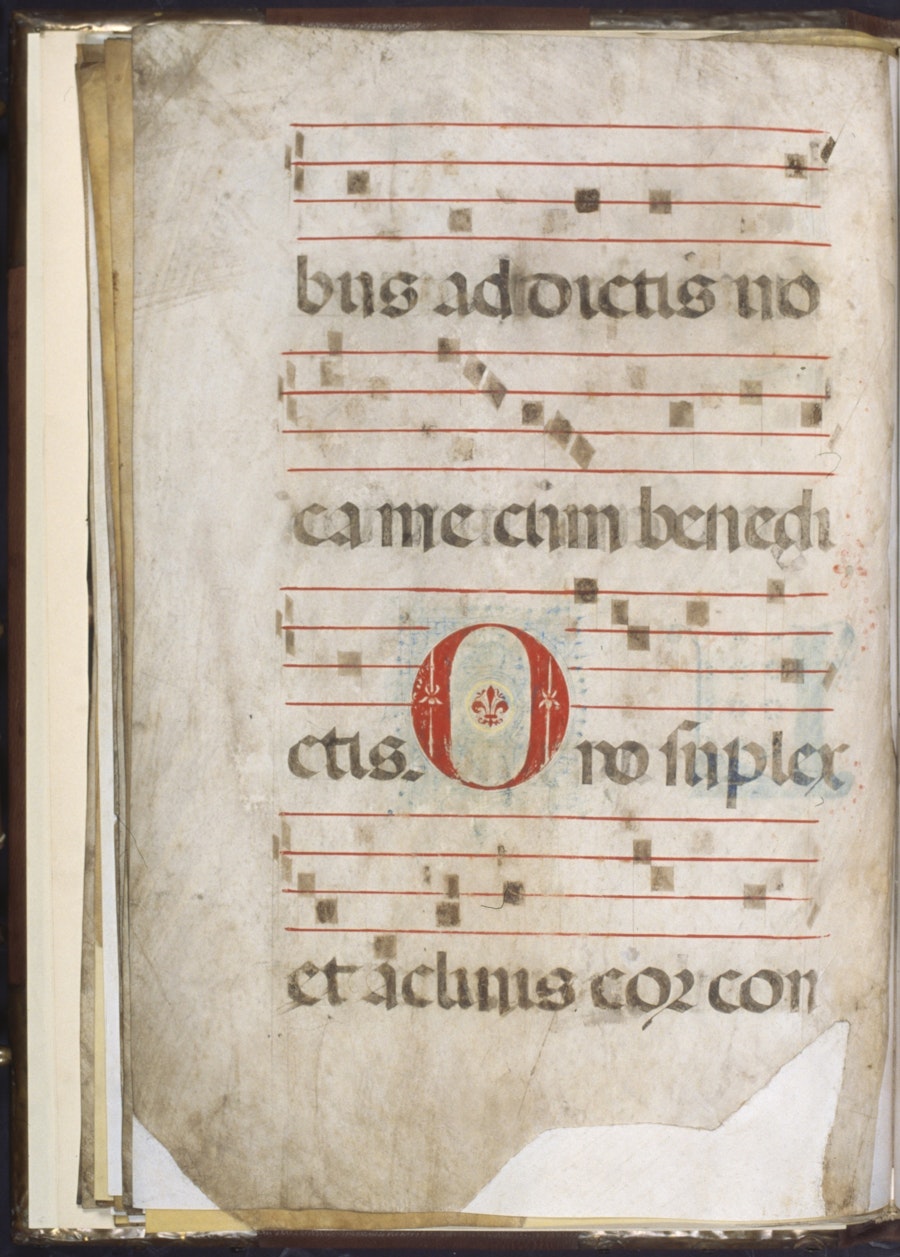 bus addictis uo
ca me cum benedi
ctis. Oro suplex
et aclinis cor con